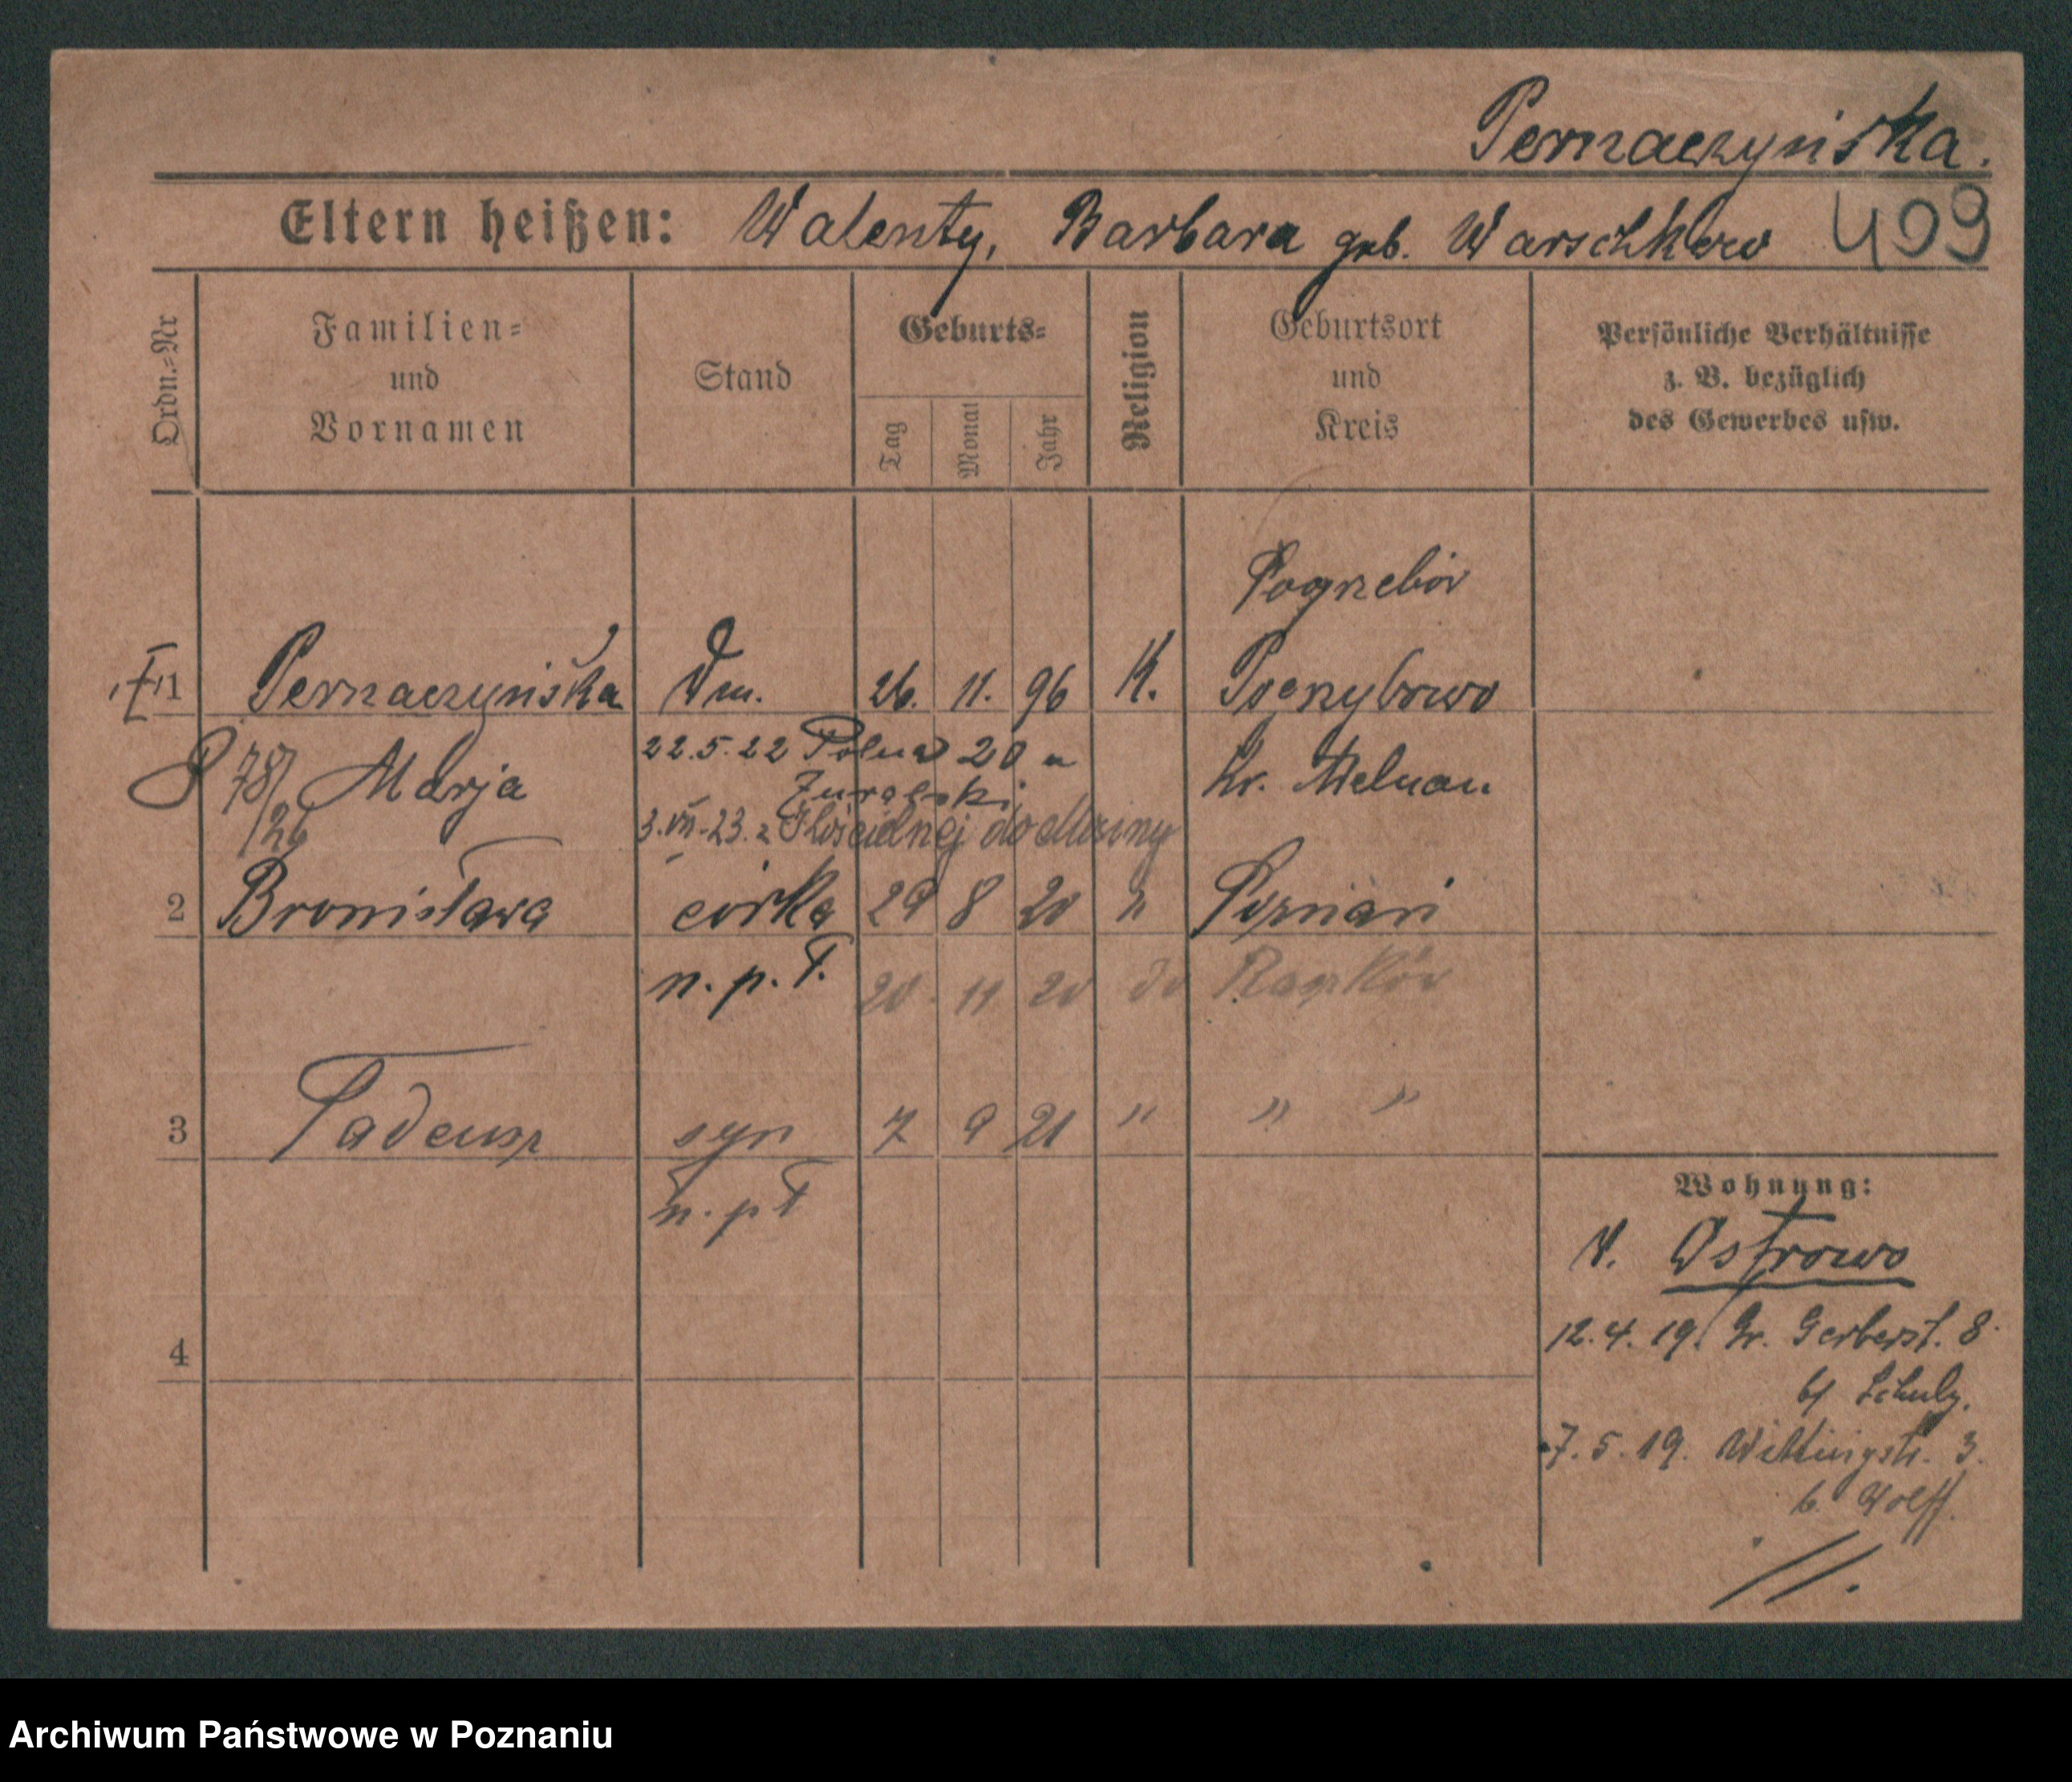 Pernaczyńska.
Eltern heißen: Walenty, Barbara geb. Warschkow 409
Ordn.=Nr
Familien=
und
Vornamen
Stand
Geburts=
Tag
Monat
Jahr
Religion
Geburtsort
und
Kreis
Persönliche Verhältnisse
z. B. bezüglich
des Gewerbes usw.
Pogrzebów
1 Pernaczyńska 26. 11. 96 K. Poczybowo
78/26 Marja 22.5.22 Polna 20 u
Żuralski Kr. Adelnau
3.VII.23. z do
2 Bronisława córka 29 8 20 " Poznań
n. p. T. 20 11 20 do Raszków
3 Tadeusz syn 7 9 21 " " "
n. p T
4
Wohnung:
v. Ostrowo
12.4.19. Gr. Gerberst. 8.
b/ Schulz.
7.5.19. Wittingstr. 3.
b. Wolff.
Archiwum Państwowe w Poznaniu